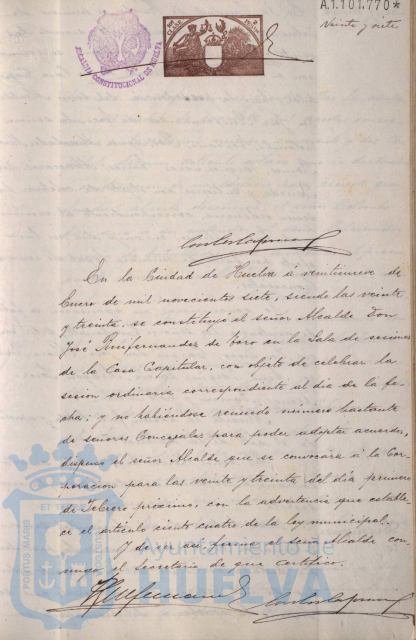 A.1.101.770*
Veinte y siete
ALCALDIA CONSTITUCIONAL DE HUELVA
En la Ciudad de Huelva á veintinueve de
Enero de mil novecientos siete, siendo las veinte
y treinta, se constituyó el señor Alcalde Don
José Punifernandez de Toro en la Sala de sesiones
de la Casa Capitular, con objeto de celebrar la
sesión ordinaria correspondiente al día de la fe-
cha; y no habiéndose reunido número bastante
de señores Concejales para poder adoptar acuerdo,
dispuso el señor Alcalde que se convocara á la Cor-
poración para las veinte y treinta del día primero
de Febrero próximo, con la advertencia que estable-
ce el artículo ciento cuatro de la ley municipal.
Y de ser así, firma el señor Alcalde con-
migo el Secretario de que certifico.
PORTUS MARIS
Ayuntamiento de
HUELVA